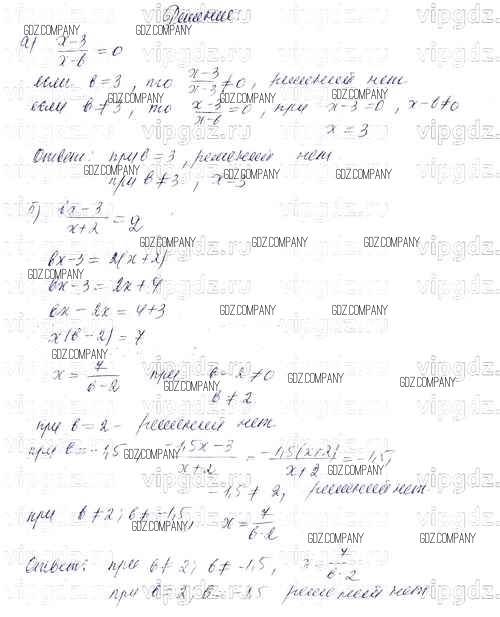 Решение:
а) x-3/x-в = 0
если в = 3, то x-3/x-3 ≠ 0, решений нет
если в ≠ 3, то x-3/x-в = 0, при x-3=0, x-в≠0
x = 3
Ответ: при в = 3, решений нет
при в ≠ 3, x = 3
б) вx-3/x+2 = 2
вx-3 = 2(x+2)
вx-3 = 2x+4
вx - 2x = 4+3
x(в-2) = 7
x = 7/в-2 при в-2 ≠ 0
в ≠ 2
при в = 2 - решений нет
при в = -1,5 -1,5x-3/x+2 = -1,5(x+2)/x+2 = -1,5,
-1,5 ≠ 2, решений нет
при в ≠ 2; в ≠ -1,5, x = 7/в-2
Ответ: при в ≠ 2; в ≠ -1,5, x = 7/в-2
при в = 2; в = -1,5 решений нет
GDZ.COMPANY
vipgdz.ru